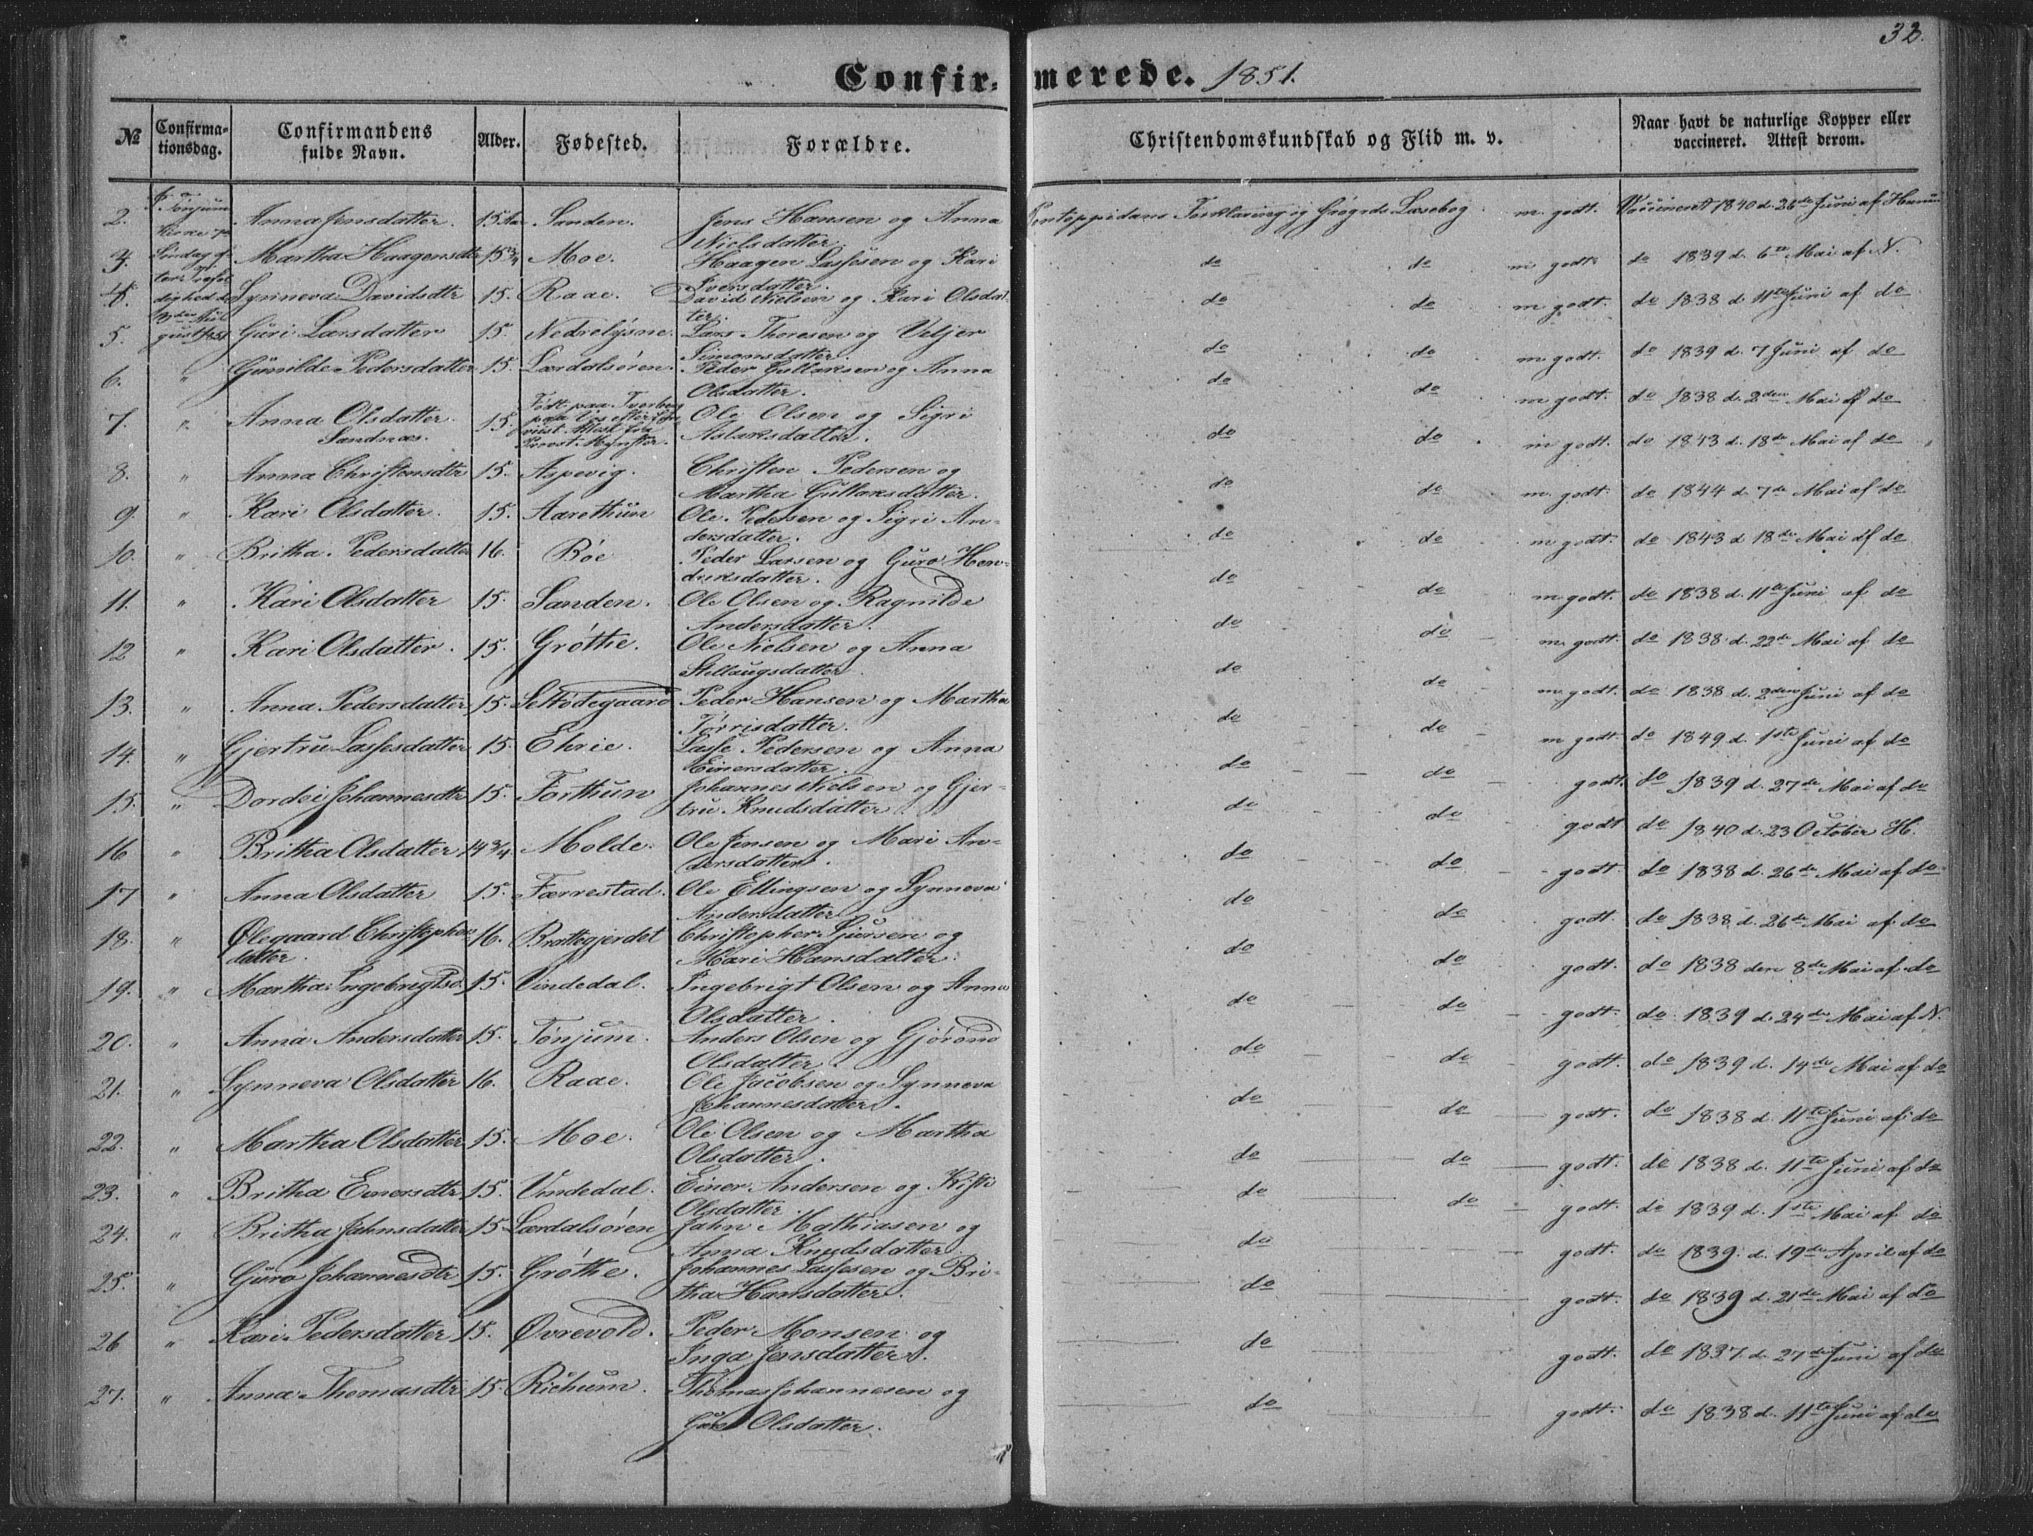 32.
Confirmerede. 1851.
No Confirmationsdag. Confirmandens fulde Navn. Alder. Fødested. Forældre. Christendomskundskab og Flid m. v. Naar havt de naturlige Kopper eller vaccineret. Attest derom.
2. Tønjum Kirke Anna Jensdatter 15 Sanden. Jens Hansen og Anna Nielsdatter Pontoppidans Forklaring og Læsebog m. godt. Vaccineret 1840 d. 26de Juni af
3. Søndag Martha Haagensdtr 15 3/4 Moe. Haagen Lassesen og Kari Iversdatter. do do m godt do 1839 d. 6te Mai af N.
4. Synneva Davidsdtr 15. Raae. David Nielsen og Kari Olsdatter. do do m godt. do 1838 d. 11te Juni af do
5. Guri Larsdatter 15. Nedrelysne. Lars Thoresen og Veljer Simonsdatter. do do m godt. do 1839 d. 7 Juni af do
6. " Gunilde Pedersdatter 15. Lærdalsøren. Peder Gullaksen og Anna Olsdatter. do do m godt. do 1838 d. 2den Mai af do
7. " Anna Olsdatter Sandnæs. 15. Født paa paa Vos efter Attest fra Provst Ole Olsen og Sigri Aslaksdatter. do do m godt. do 1843 d. 18de Mai af do
8. " Anna Christensdtr 15. Aspevig. Christen Pedersen og Martha Gullaksdatter. do do m. godt. do 1844 d. 7de Mai af do
9. " Kari Olsdatter. 15. Aarethun Ole Pedersen og Sigri Andersdatter. do do m godt. do 1843 d. 18de Mai af do
10. " Britha Pedersdatter 16. Bøe Peder Larsen og Guro Hendriksdatter. do do m godt. do 1838 d. 11te Juni af do
11. " Kari Olsdatter 15. Sanden. Ole Olsen og Ragnilde Andersdatter. do do m. godt. do 1838 d. 22de Mai af do
12 " Kari Olsdatter. 15. Grøthe. Ole Nielsen og Anna Stillaugsdatter. do do m. godt. do 1838 d. 2den Juni af do
13. " Anna Pedersdatter 15. Peder Hansen og Martha Tørrisdatter. do do m godt. do 1849 d. 1ste Juni af do
14. " Gjertru Lassesdatter 15. Ehrie. Lasse Pedersen og Anna Einersdatter. do do godt. do 1839 d. 27de Mai af do
15. " Dordei Johannesdtr 15. Forthun Johannes Nielsen og Gjertru Knudsdatter. do do godt do 1840 d. 23 October H.
16 " Britha Olsdatter 14 3/4 Molde. Ole Jensen og Mari Andersdatter. do do godt. do 1838 d. 26de Mai af do
17 " Anna Olsdatter 15. Færrestad. Ole Ellingsen og Synneva Andersdatter do do godt. do 1838 d. 26de Mai af do
18. " Ølegaard Christophersdatter. 16. Brattegjerdet Christopher Siursen og Mari Hansdatter. do do godt. do 1838 den 8de Mai af do
19. " Martha 15. Vindedal. Ingebrigt Olsen og Anna Olsdatter. do do godt. do 1839 d. 24de Mai af N.
20. " Anna Andersdatter 15. Tønjum. Anders Olsen og Gjørond Olsdatter. do do godt. do 1839 d. 14de Mai af do
21. " Synneva Olsdatter 16. Raae. Ole Jacobsen og Synneva Johannesdatter. do do godt. do 1838 d. 11te Juni af do
22. " Martha Olsdatter 15. Moe. Ole Olsen og Martha Olsdatter. do do godt. do 1838 d. 11te Juni af do
23. " Britha Einersdtr 15. Vindedal. Einer Andersen og Kisti Olsdatter do do godt. do 1839 d. 1ste Mai af do
24. " Britha Jahnsdatter 15. Lærdalsøren Jahn Mathiasen og Anna Knudsdatter. do godt. do 1839. d. 19de April af do
25. " Guro Johannesdtr 15. Grøthe. Johannes Lassesen og Britha Hansdatter. do godt. do 1839 d. 21de Mai af do
26 " Kari Pedersdatter 15. Øvrevold. Peder Monsen og Inga Jensdatter. do godt. do 1837. d. 27de Juni af do
27. " Anna Thomasdtr 15. Richum. Thomas Johannesen og Guro Olsdatter. do godt. do 1838 d. 11te Juni af do